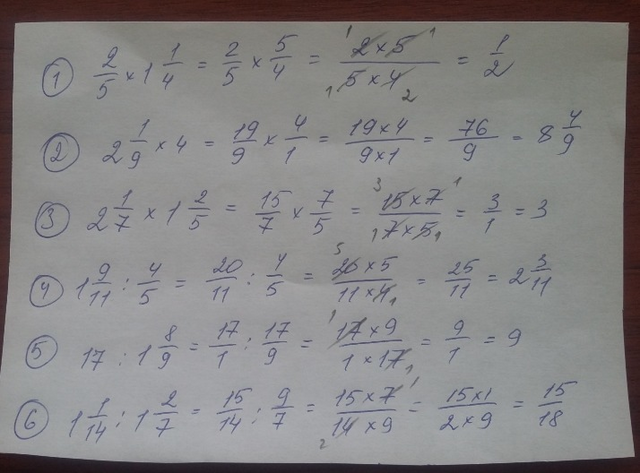 ① 2/5 × 1 1/4 = 2/5 × 5/4 = (2 × 5)/(5 × 4) = 1/2
② 2 1/9 × 4 = 19/9 × 4/1 = (19 × 4)/(9 × 1) = 76/9 = 8 4/9
③ 2 1/7 × 1 2/5 = 15/7 × 7/5 = (15 × 7)/(7 × 5) = 3/1 = 3
④ 1 9/11 : 4/5 = 20/11 : 4/5 = (20 × 5)/(11 × 4) = 25/11 = 2 3/11
⑤ 17 : 1 8/9 = 17/1 : 17/9 = (17 × 9)/(1 × 17) = 9/1 = 9
⑥ 1 1/14 : 1 2/7 = 15/14 : 9/7 = (15 × 7)/(14 × 9) = (15 × 1)/(2 × 9) = 15/18